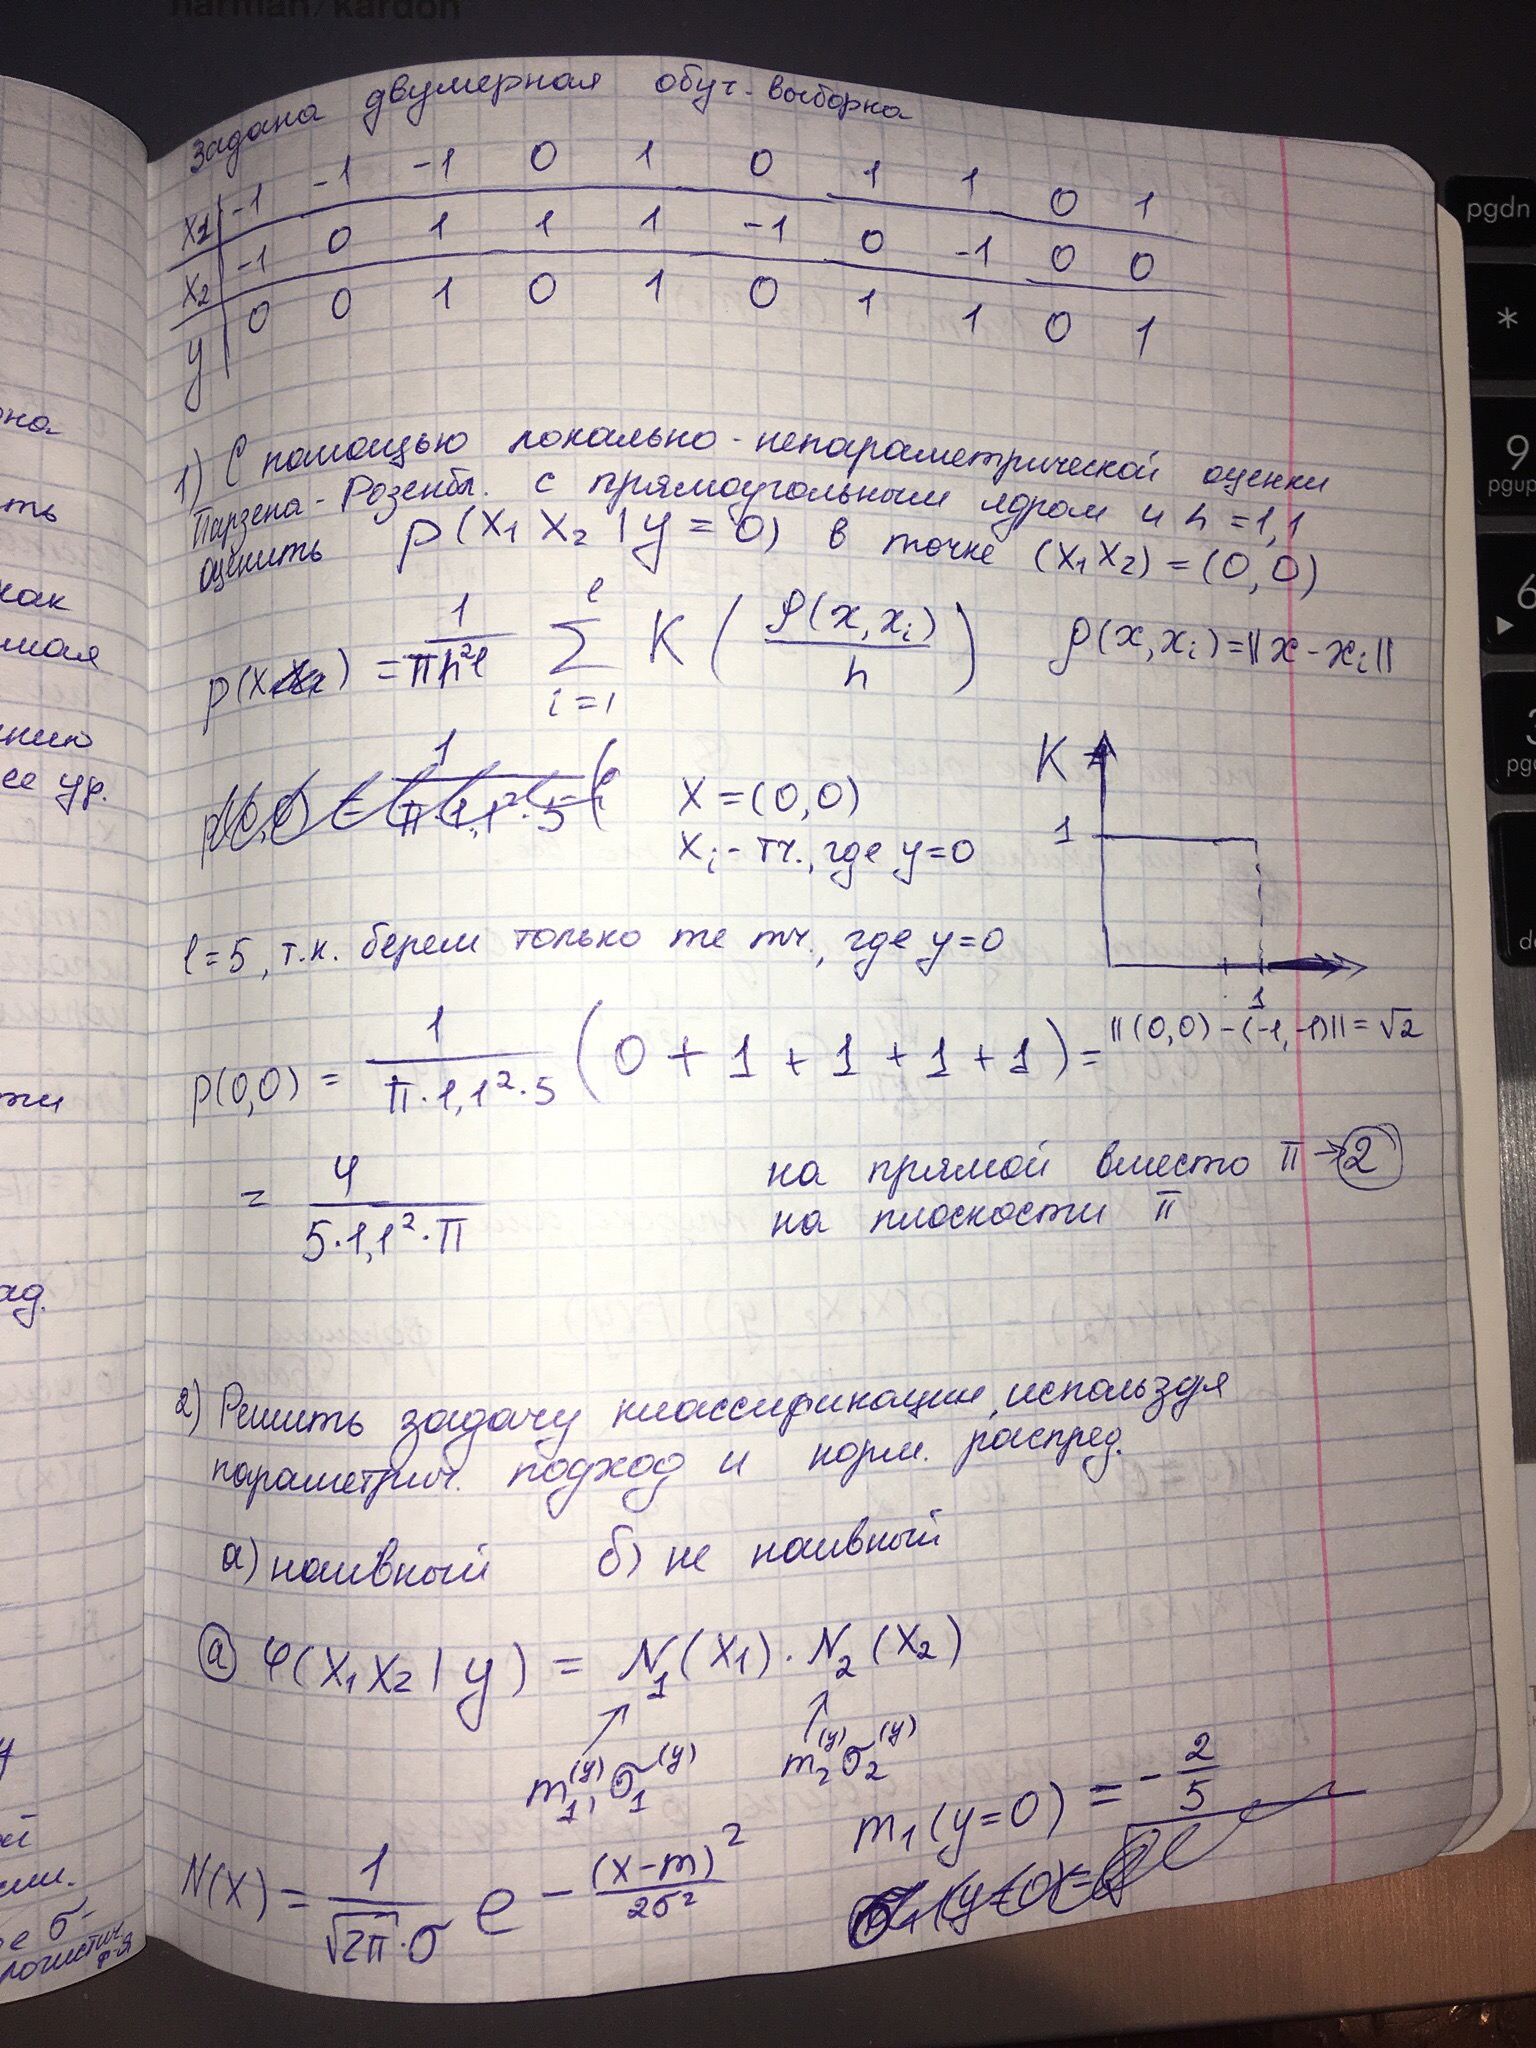 harman/kardon
Задана двумерная обуч. выборка
x1 | -1 -1 -1 0 1 0 1 1 0 1
x2 | -1 0 1 1 1 -1 0 -1 0 0
y | 0 0 1 0 1 0 1 1 0 1
1) С помощью локально-непараметрической оценки
Парзена-Розенбл. с прямоугольным ядром и h = 1,1
оценить p(x1 x2 | y = 0) в точке (x1 x2) = (0,0)
p(x) = 1/(πh²ℓ) ∑_{i=1}^{ℓ} K(ρ(x, xi)/h) ρ(x, xi) = ||x - xi||
x = (0,0)
xi - тч., где y=0
K
1
1
ℓ=5, т.к. берем только те тч., где y=0
||(0,0) - (-1,-1)|| = √2
p(0,0) = 1/(π·1,1²·5) (0 + 1 + 1 + 1 + 1) =
= 4/(5·1,1²·π)
на прямой вместо π → 2
на плоскости π
2) Решить задачу классификации, используя
параметрич. подход и норм. распред.
а) наивный б) не наивный
а) φ(x1 x2 | y) = N1(x1) · N2(x2)
m1^(y), σ1^(y) m2^(y) σ2^(y)
m1(y=0) = -2/5
N(x) = 1/(√2π · σ) e^{-(x-m)²/2σ²}
pgdn
*
9
pgup
6
3